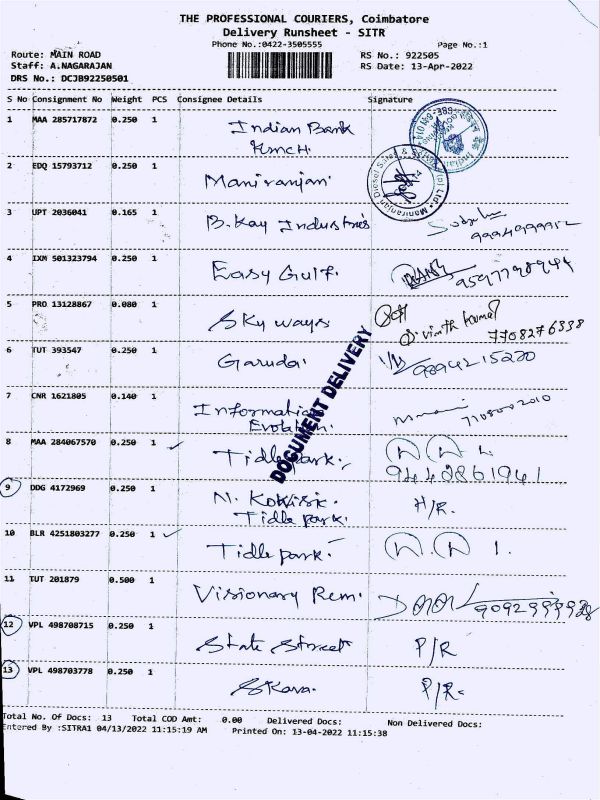 THE PROFESSIONAL COURIERS, Coimbatore
Delivery Runsheet - SITR
Phone No.:0422-3505555
Page No.:1
Route: MAIN ROAD
RS No.: 922505
Staff: A.NAGARAJAN
RS Date: 13-Apr-2022
DRS No.: DCJB92250501
S No Consignment No Weight PCS Consignee Details Signature
1 MAA 285717872 0.250 1 Indian Bank
KMCH.
2 EDQ 15793712 0.250 1 Maniranjan.
3 UPT 2036041 0.165 1 B.Kay Industries
4 IXM 501323794 0.250 1 Easy Gulf.
5 PRO 13128867 0.080 1 Sky ways
7708276338
6 TUT 393547 0.250 1 Garuda.
DOCUMENT DELIVERY
7 CNR 1621805 0.140 1 Information
Evolution.
8 MAA 284067570 0.250 1 Tidle park.
9442861941
9 DDG 4172969 0.250 1 H/R.
Tidle park.
10 BLR 4251803277 0.250 1 Tidle park.
11 TUT 201879 0.500 1 Visionary Rem.
12 VPL 498708715 0.250 1 State Street P/R
13 VPL 498703778 0.250 1 SKava. P/R.
Total No. Of Docs: 13 Total COD Amt: 0.00 Delivered Docs: Non Delivered Docs:
Entered By :SITRA1 04/13/2022 11:15:19 AM Printed On: 13-04-2022 11:15:38